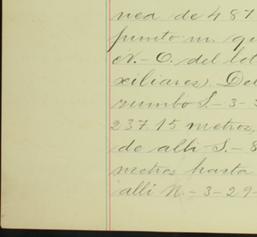 nea de 487
punto m. qu
N.-O. del lot
xiliares). Del
rumbo S.-3-3
237.15 metros,
de alli-S.-8
metros hasta
alli N.-3-29-